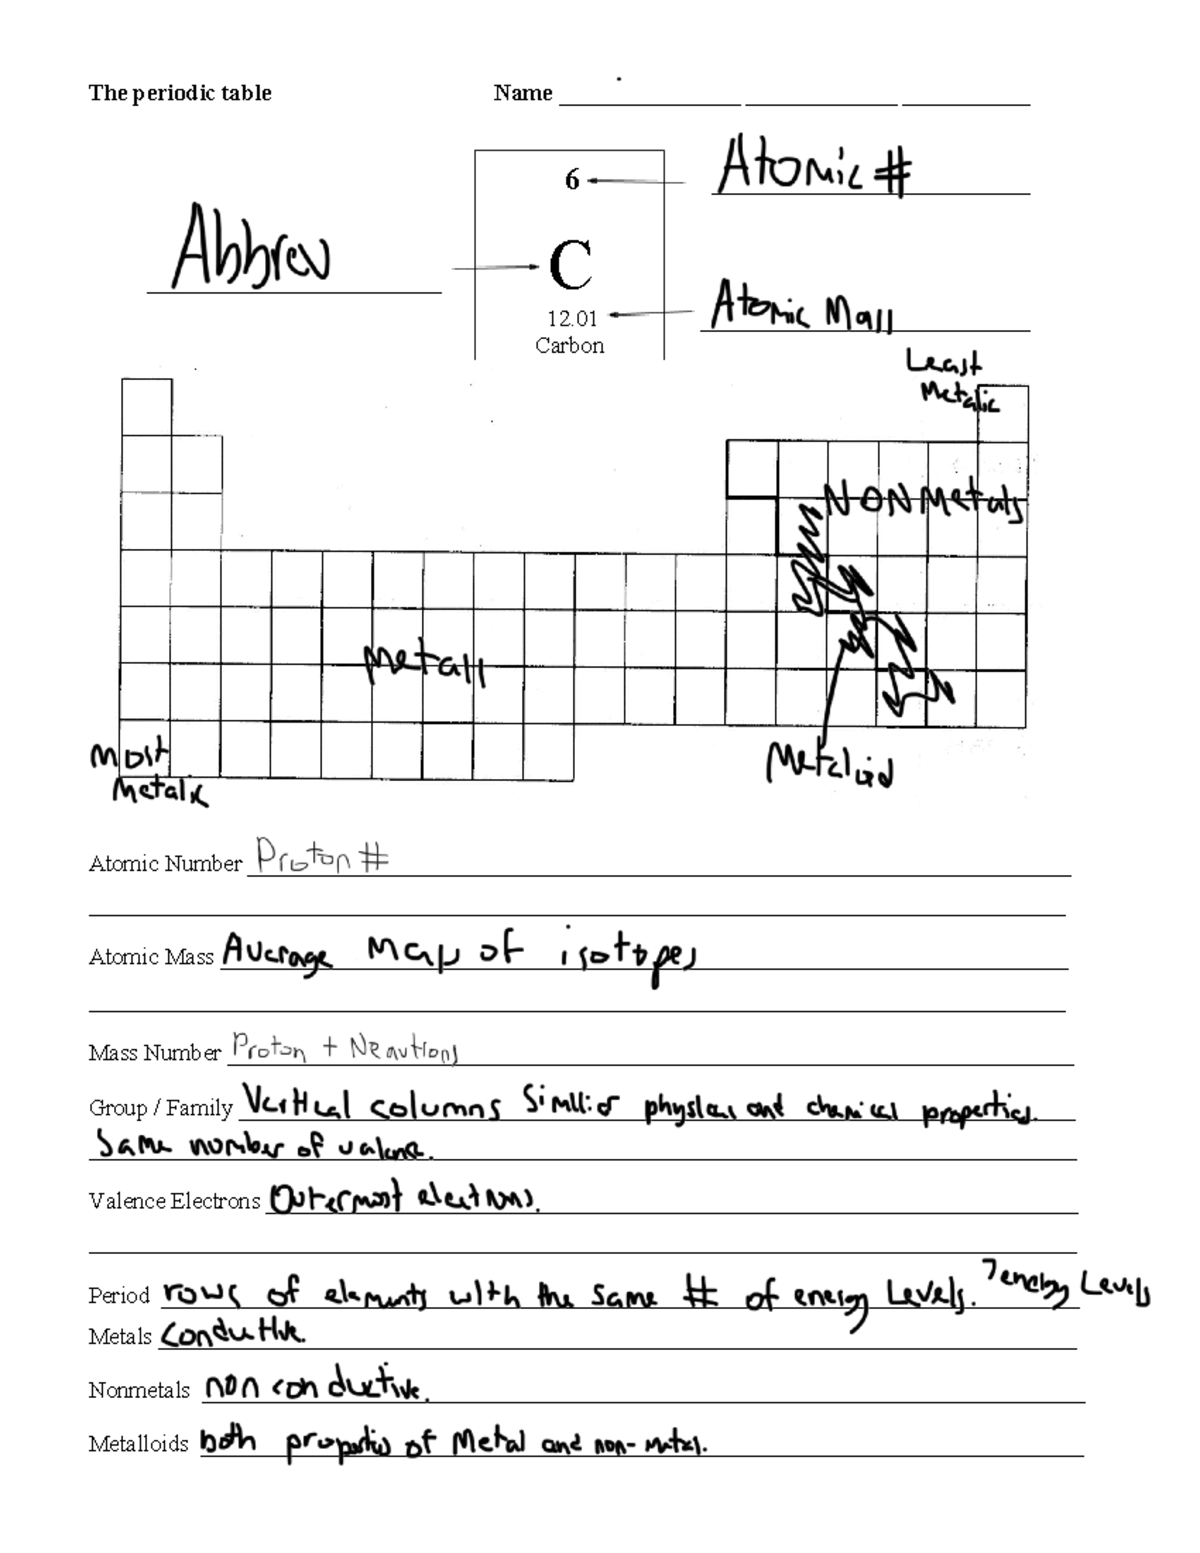 The periodic table Name
6
Atomic #
Abbrev
C
12.01
Atomic Mass
Carbon
Least
Metalic
NONMetals
Metals
Most
Metalic
Metaloid
Atomic Number Proton #
Atomic Mass Average Mass of isotopes
Mass Number Proton + Neautrons
Group / Family Vertical columns Simillar physical and chemical properties.
Same number of valence.
Valence Electrons Outermost electrons.
Period rows of elements with the same # of energy Levels. 7 energy Levels
Metals Conductive.
Nonmetals non conductive.
Metalloids both properties of Metal and non-metal.